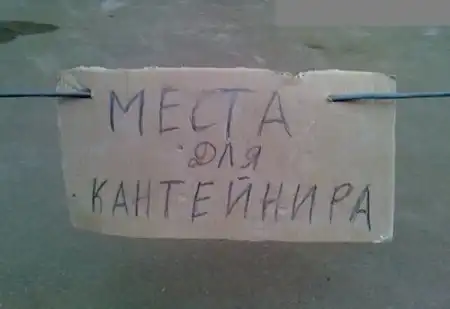 МЕСТА
для
КАНТЕЙНИРА